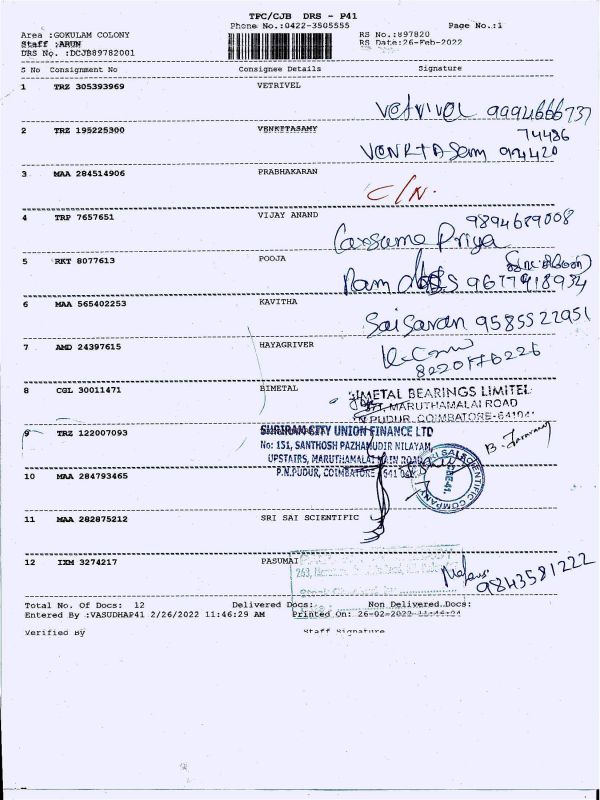 TFC/CJB DRS - P41
Phone No.:0422-3505555
Page No.:1
Area :GOKULAM COLONY
RS No.:897820
Staff :ARUN
RS Date:26-Feb-2022
DRS No. :DCJB89782001
S No Consignment No Consignee Details Signature
1 TRZ 305393969 VETRIVEL
Vetrivel 9994666737
2 TRZ 195225300 VENKETASAMY
74486
VENKTASam 944420
3 MAA 284514906 PRABHAKARAN
C/N.
4 TRP 7657651 VIJAY ANAND
9894689008
Priya
5 RKT 8077613 POOJA
9677918934
6 MAA 565402253 KAVITHA
Sai Saran 9585522951
7 AMD 24397615 HAYAGRIVER
8220176226
8 CGL 30011471 BIMETAL
BIMETAL BEARINGS LIMITED
MARUTHAMALAI ROAD
N.PUDUR, COIMBATORE-641041
9 TRZ 122007093
SHRIRAM CITY UNION FINANCE LTD
No: 151, SANTHOSH PAZHAMUDIR NILAYAM,
UPSTAIRS, MARUTHAMALAI MAIN ROAD
P.N.PUDUR, COIMBATORE 641 041
SRI SAI SCIENTIFIC COMPANY
CBE-41.
10 MAA 284793465
11 MAA 282875212 SRI SAI SCIENTIFIC
12 IXM 3274217 PASUMAI
9843581222
Total No. Of Docs: 12 Delivered Docs: Non Delivered Docs:
Entered By :VASUDHAP41 2/26/2022 11:46:29 AM Printed On: 26-02-2022 11:46:24
Verified By Staff Signature